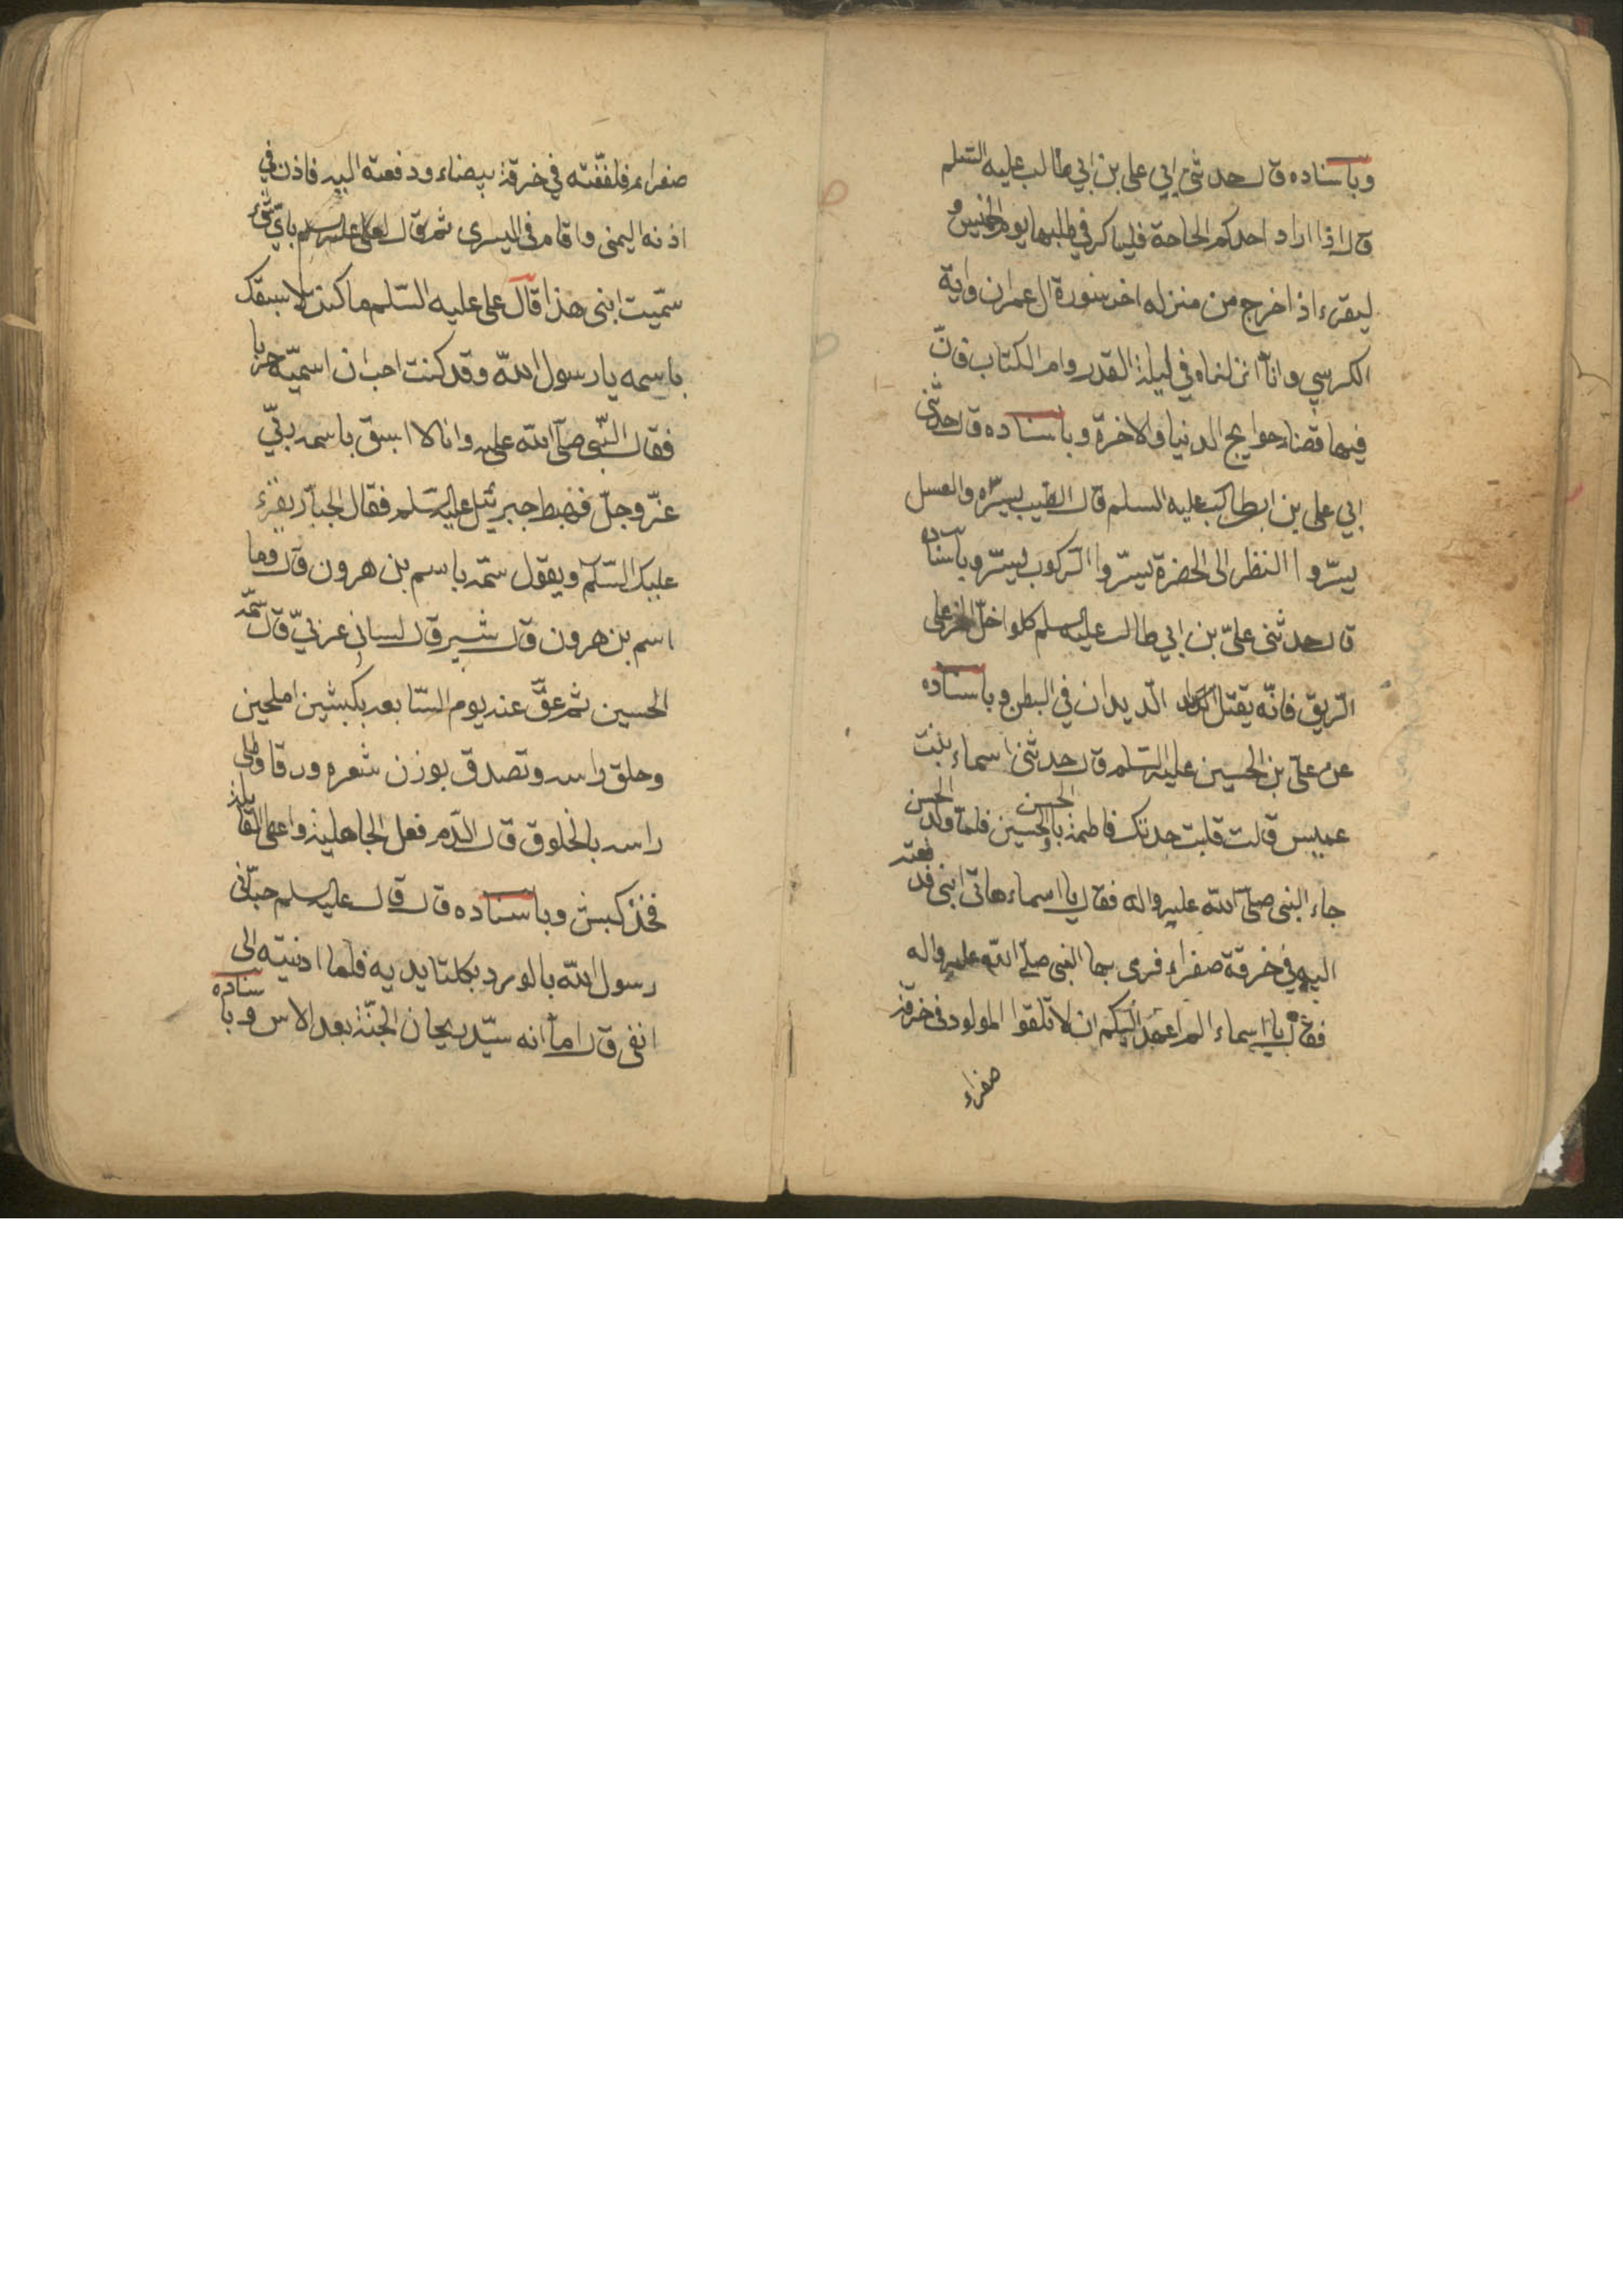 وباسناده قال حدثنی ابي علی بن ابي طالب عليه السّلم
قال اذا اراد احدكم الحاجة فليباكر في طلبها يوم الخميس و
ليقرء اذا خرج من منزله اخر سورة ال عمران واية
الكرسي وانّا انزلناه في ليلة القدر وام الكتاب فانّ
فيها قضاء حوايج الدنيا والاخرة وباسناده قال حدثنی
ابي علی بن ابيطالب عليه السلم قال الطيب يسرّه والعسل
يسرّوا النظر الى الخضرة يسرّوا الركوب يسرّ وباسناده
قال حدثنی علیّ بن ابي طالب عليه السلم كلوا خلّ الخمر علی
الرّيق فانّه يقتل الديدان في البطن وباسناده
عن علیّ بن الحسين عليه السّلم قال حدثتنی اسماء بنت
عميس قالت قبلت جدتك فاطمة بالحسن والحسين فلمّا ولد الحسن
جاء النبی صلّی الله عليه واله فقال يا اسماء هاتی ابنی فدفعته
اليه في خرقة صفراء فرمى بها النبی صلّی الله عليه واله
فقال يا اسماء الم اعهد اليكم ان لا تلفّوا المولود في خرقة
صفراء
صفراء فلففّته في خرقة بيضاء ودفعته اليه فاذن في
اذنه اليمنى واقام في اليسرى ثم قال لعلی عليه السلم بايّ شیء
سمّيت ابنی هذا قال علی عليه السّلم ما كنت لاسبقك
باسمه يا رسول الله وقد كنت احب ان اسميّه حربا
فقال النّبی صلّی الله عليه وانا لا اسبق باسمه ربّي
عزّ وجلّ فهبط جبرئيل عليه السّلم فقال الجبّار يقرء
عليك السّلم ويقول سمّه باسم بن هرون قال وما
اسم بن هرون قال شبير قال لسانی عربيّ قال سمّه
الحسين ثم عقّ عنه يوم السّابع بكبشين املحين
وحلق راسه وتصدق بوزن شعره ورقا وطلى
راسه بالخلوق قال الدّم فعل الجاهلية واعطى القابلة
فخذ كبش وباسناده قال قال عليه السلم حبّانی
رسول الله بالورد بكلتا يديه فلما ادنيته الى
انفی قال اما انه سيّد ريحان الجنّة بعد الاس وباسناده